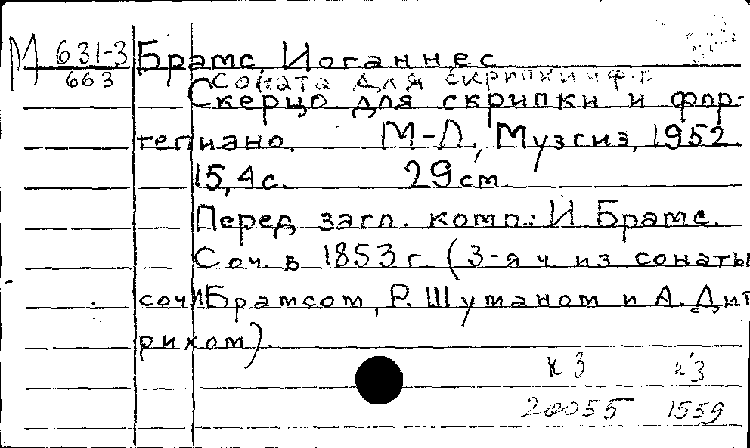 М 631-3 Брамс, Иоганнес
663 Соната для скрипки и ф.-п
Скерцо для скрипки и фор-
тепиано. М-Л., Музгиз, 1952.
15,4с. 29см.
Перед загл. комп.: И. Брамс.
Соч. в 1853г. (3-я ч. из сонаты
соч И Брамсом, Р. Шуманом и А. Дит
рихом).
к 3 к 3
20055 1559